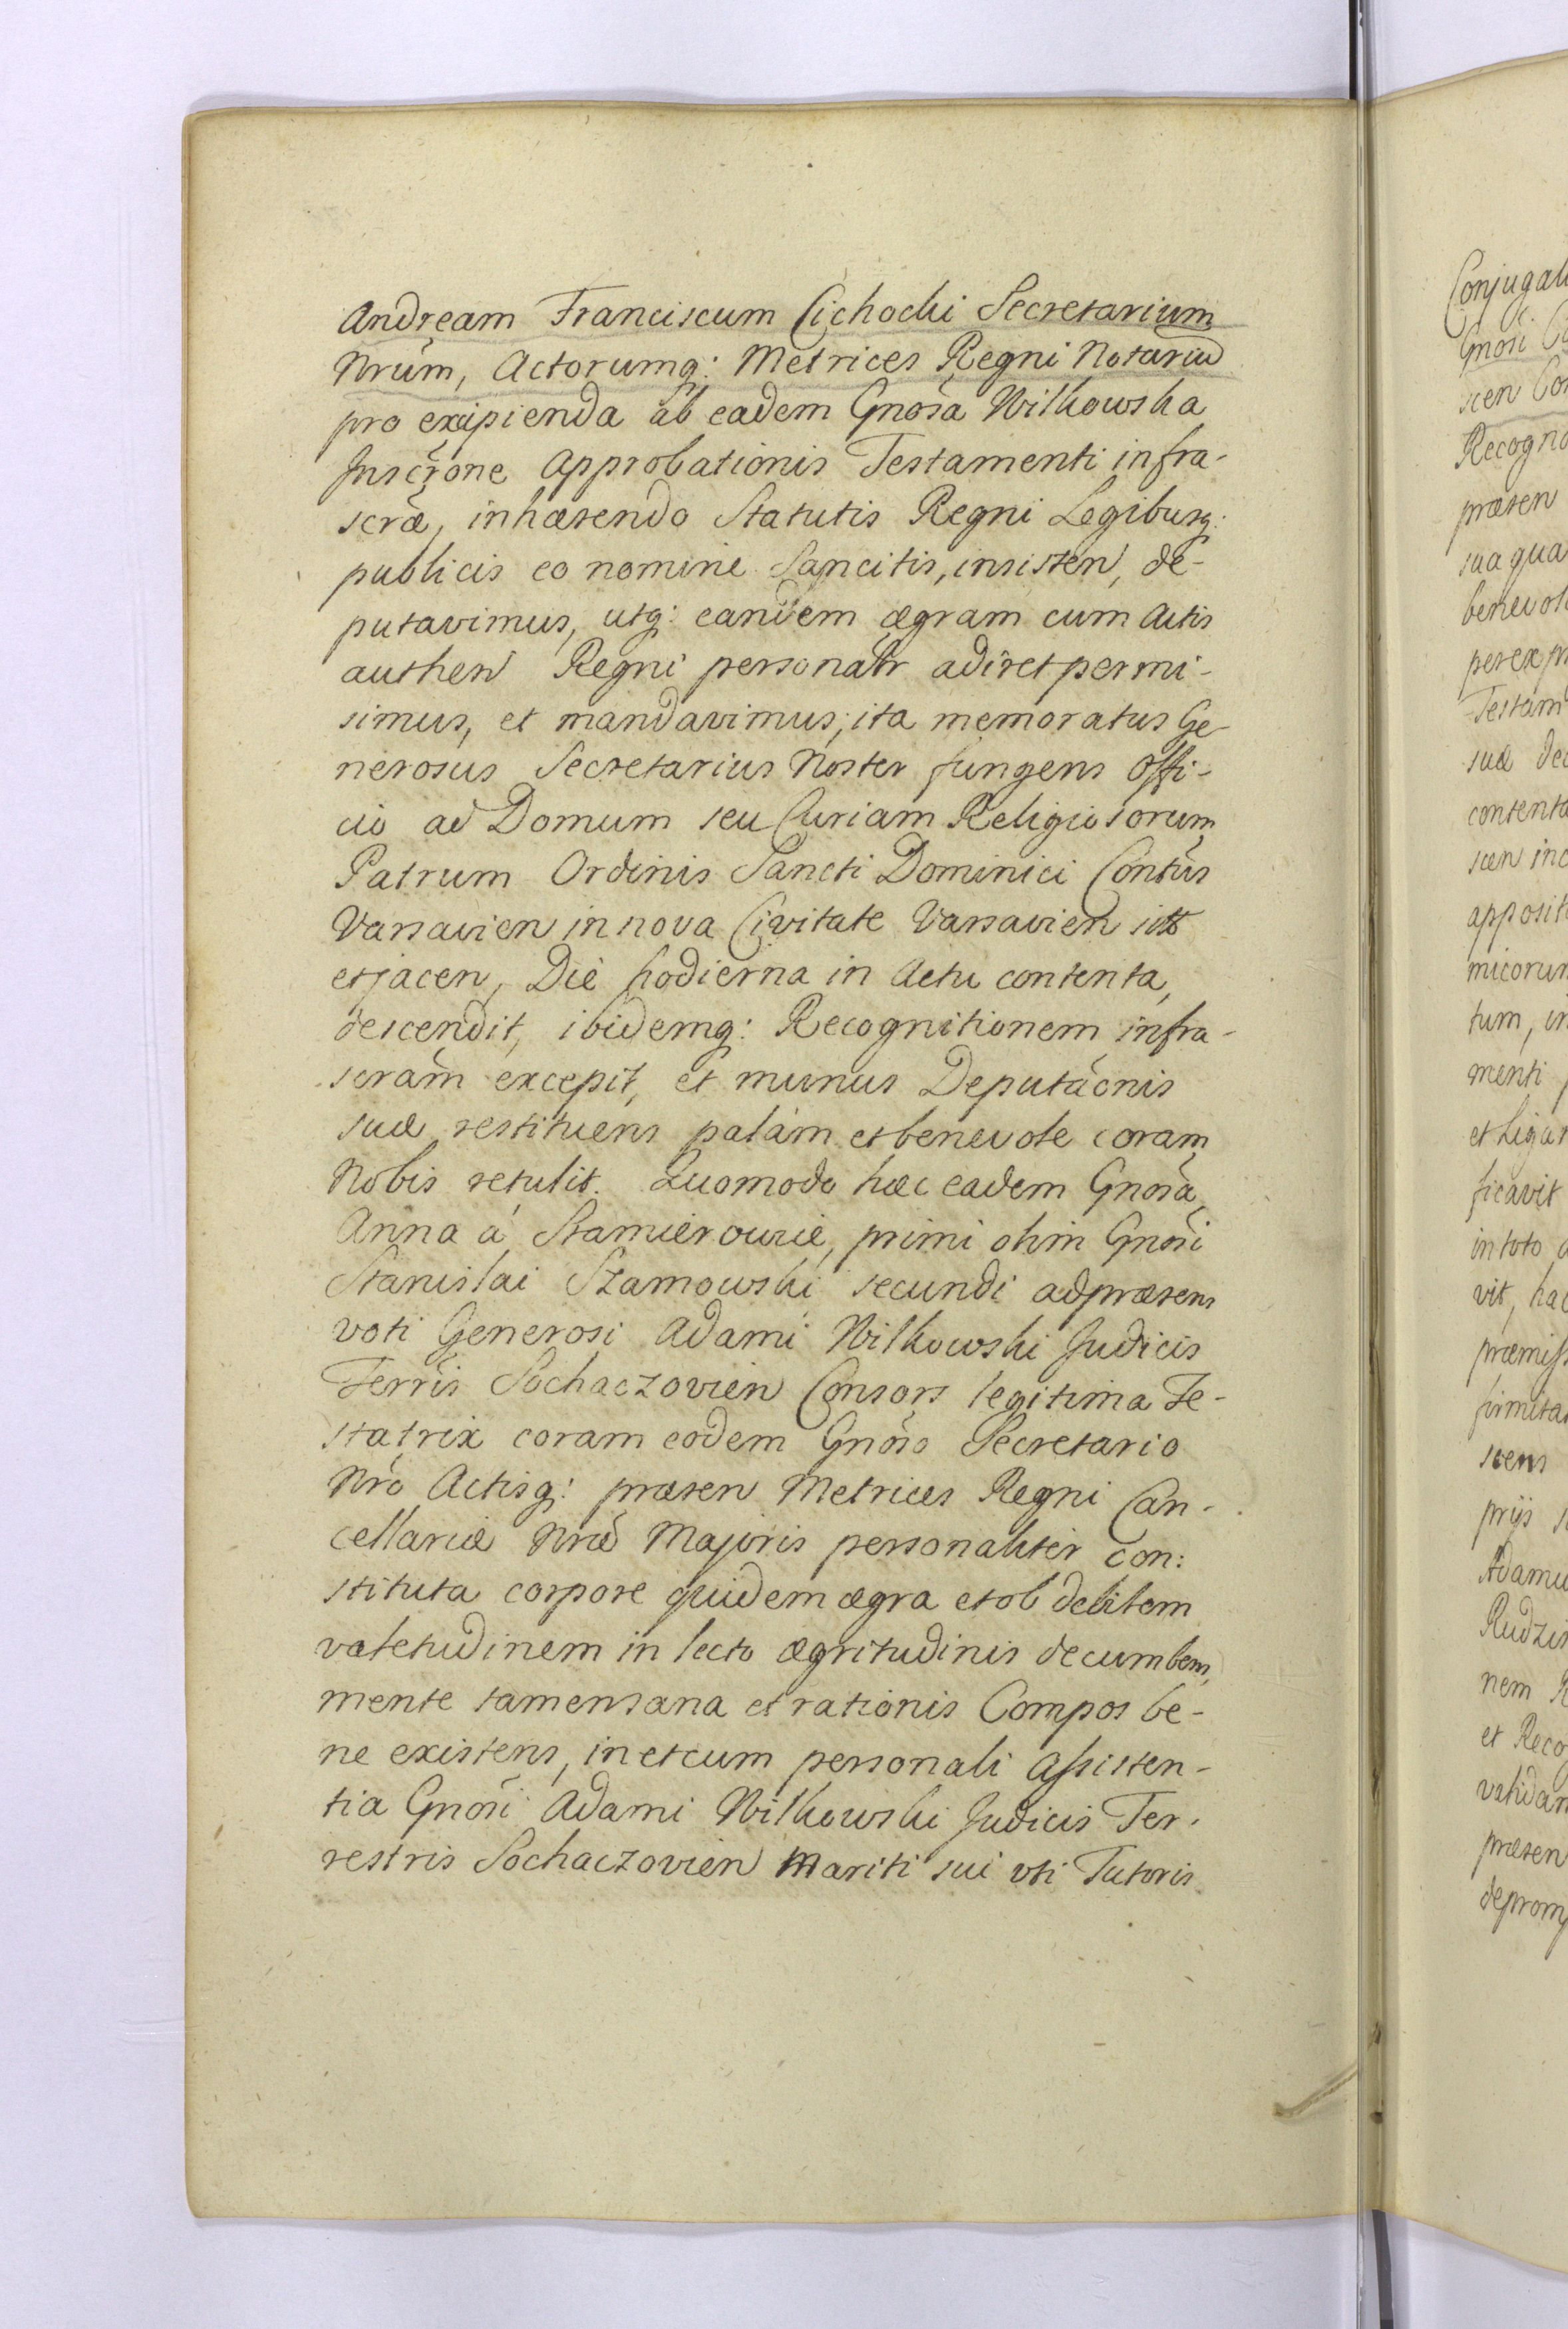 Andream Franciscum Cichocki Secretarium
Nrum, Actorumq: Metrices Regni Notariu
pro excipienda ab eadem Gnosa Wilkowska
Inscrone Approbationis Testamenti infra-
scræ, inhærendo Statutis Regni Legibusq:
publicis eo nomine Sancitis, insisten, de-
putavimus, utq: eandem ægram cum Actis
authen Regni personalr adiret permi-
simus, et mandavimus, ita memoratus Ge-
nerosus Secretarius Noster fungens Offi-
cio ad Domum seu Curiam Religiosorum
Patrum Ordinis Sancti Dominici Contus
Varsavien in nova Civitate Varsavien sit
et jacen, Die hodierna in Actu contenta,
descendit, ibidemq: Recognitionem infra-
scram excepit, et munus Deputaonis
suæ restituens palam et benevole coram
Nobis retulit. Quomodo hæc eadem Gnosa
Anna á Stamierowie, primi olim Gnosi
Stanislai Szamowski secundi ad præsens
voti Generosi Adami Wilkowski Judicis
Terris Sochaczovien Consors legitima Te-
statrix coram eodem Gnoso Secretario
Nro Actisq: præsen Metrices Regni Can-
cellariæ Nræ Majoris personaliter con:
stituta corpore quidem ægra et ob debilem
valetudinem in lecto ægritudinis decumbens,
mente tamen sana et rationis Compos be-
ne existens, in et cum personali assisten-
tia Gnosi Adami Wilkowski Judicis Ter-
restris Sochaczovien Mariti sui uti Tutoris
Conjugal
Gnosi
scen
Recogno
præsen
sua qua
benevol
per ex
Testam
suæ
contenta
scen
apposit
micorum
tum,
menti
et Ligar
ficavit
in toto
vit,
præmiss
firmita
scens
prijs
Adamu
Rudzin
nem
et Reco
validan
præsen
deprom